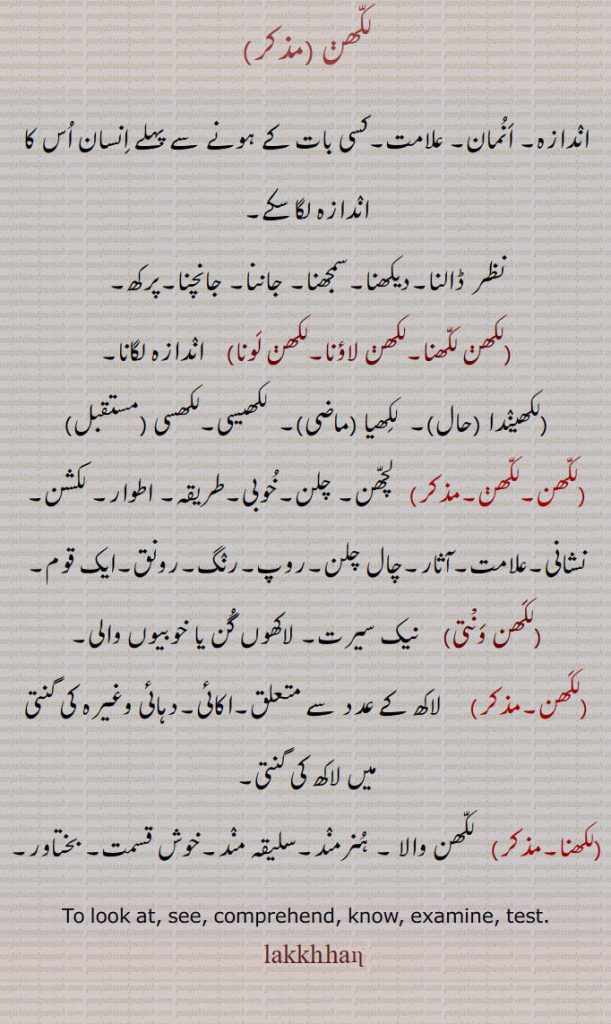 لکّھݨ (مذکر)
انْدازہ۔ اَنُمان۔ علامت۔ کسی بات کے ہونے سے پہلے اِنسان اُس کا
انْدازہ لگا سکے۔
نظر ڈالنا۔دیکھنا۔سمجھنا۔ جاننا۔ جانچنا۔پرکھ۔
(لکھݨ لکّھنا۔لکھݨ لاؤنا۔لکھݨ لَونا) انْدازہ لگانا۔
(لکھینْدا (حال)۔ لِکھیا (ماضی)۔ لکھیسی۔لکھسی (مستقبل)
(لکّھن۔لکّھݨ۔مذکر) لچّھن۔ چلن۔خُوبی۔طریقہ۔ اطوار۔ لکشن۔
نشانی۔علامت۔آثار۔چال چلن۔روپ۔رنگ۔رونق۔ایک قوم۔
(لکَھن وَنْتی) نیک سیرت۔ لاکھوں گُن یا خوبیوں والی۔
(لکَھن۔مذکر) لاکھ کے عدد سے متعلق۔اکائی۔دہائی وغیرہ کی گنتی
میں لاکھ کی گنتی۔
(لکھنا۔مذکر) لکّھن والا ۔ ہُنرمنْد۔سلیقہ منْد۔خوش قسمت۔ بختاور۔
To look at, see, comprehend, know, examine, test.
lakkhhaɳ